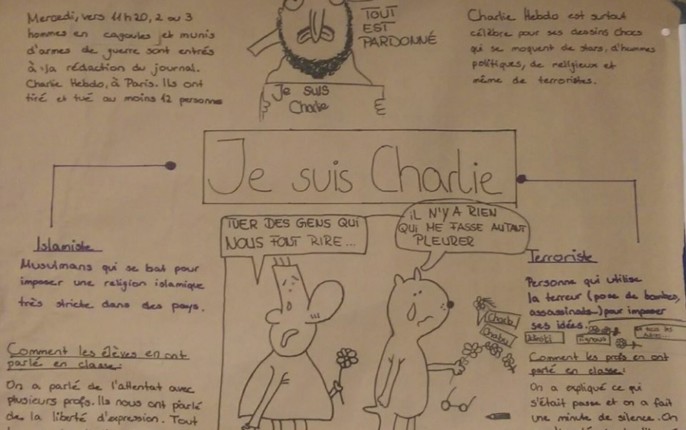 Mercredi, vers 11h20, 2 ou 3
hommes en cagoules et munis
d'armes de guerre sont entrés
à la rédaction du journal
Charlie Hebdo, à Paris. Ils ont
tiré et tué au moins 12 personnes
TOUT
EST
PARDONNÉ
JE SUIS
Charlie
Charlie Hebdo est surtout
célèbre pour ses dessins chocs
qui se moquent de stars, d'hommes
politiques, de religieux et
même de terroristes.
Je suis Charlie
Islamiste
Musulmans qui se bat pour
imposer une religion islamique
très stricte dans des pays.
Comment les élèves en ont
parlé en classe:
On a parlé de l'attentat avec
plusieurs profs. Ils nous ont parlé
de la liberté d'expression. Tout
TUER DES GENS QUI
NOUS FONT RIRE...
IL N'Y A RIEN
QUI ME FASSE AUTANT
PLEURER
Charb
Terroriste
Personne qui utilise
la terreur (pose de bombes,
assassinats...) pour imposer
ses idées.
Tignous
Comment les profs en ont
parlé en classe:
On a expliqué ce qui
s'était passé et on a fait
une minute de silence. On